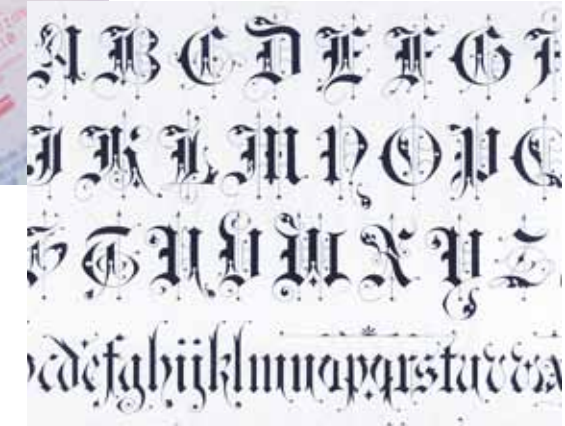 A B C D E F G
I K L M N O P Q
S T U V W X Y Z
c d e f g h i j k l m n o p q r s t u v w x